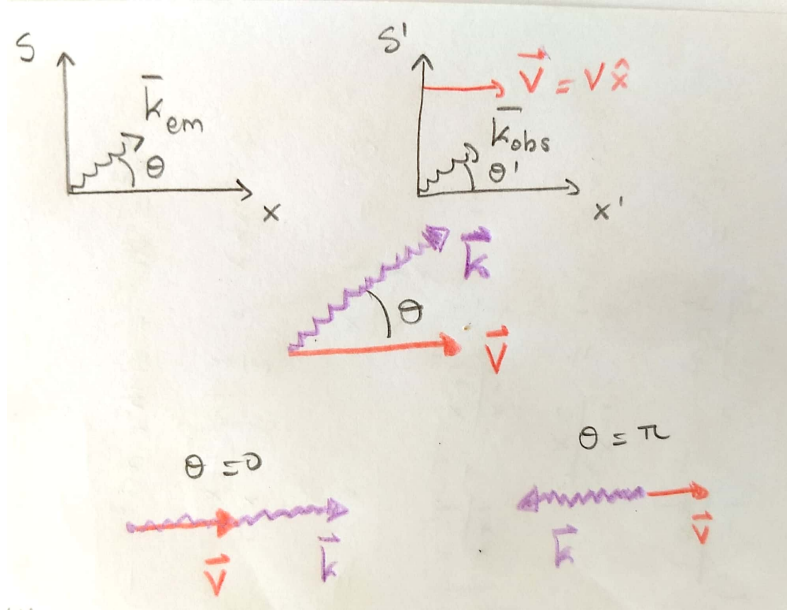 S
k̅em
θ
x
S'
V⃗ = V x̂
k̅obs
θ'
x'
k⃗
θ
V⃗
θ = 0
V⃗
k⃗
θ = π
k⃗
V⃗